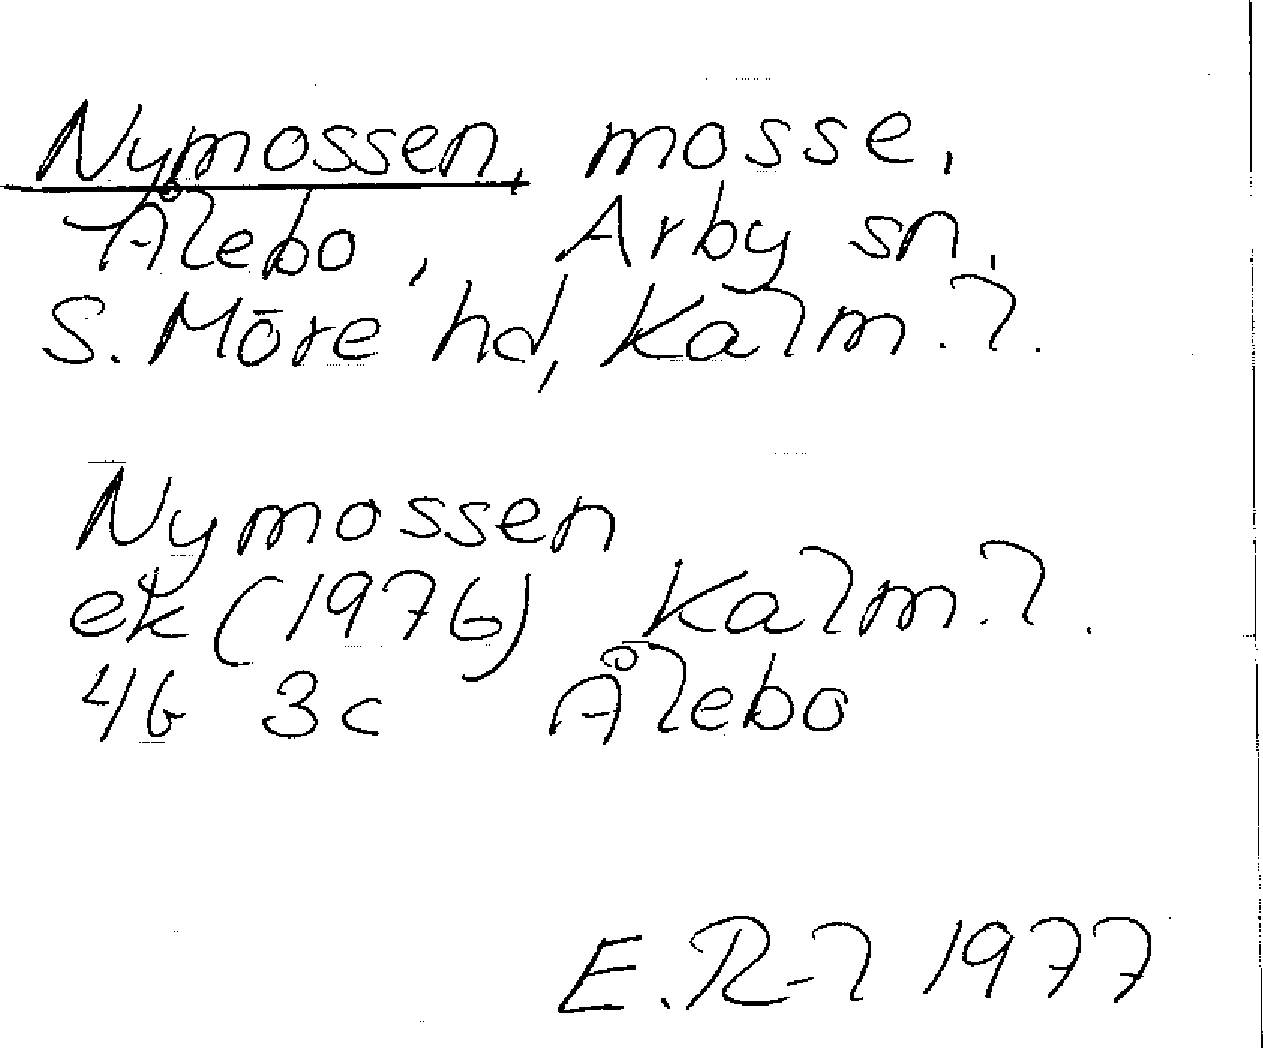 Nymossen, mosse,
Ålebo, Arby sn,
S. Möre hd, Kalm. l.
Nymossen
ek (1976) Kalm. l.
4G 3c Ålebo
E. R-l 1977